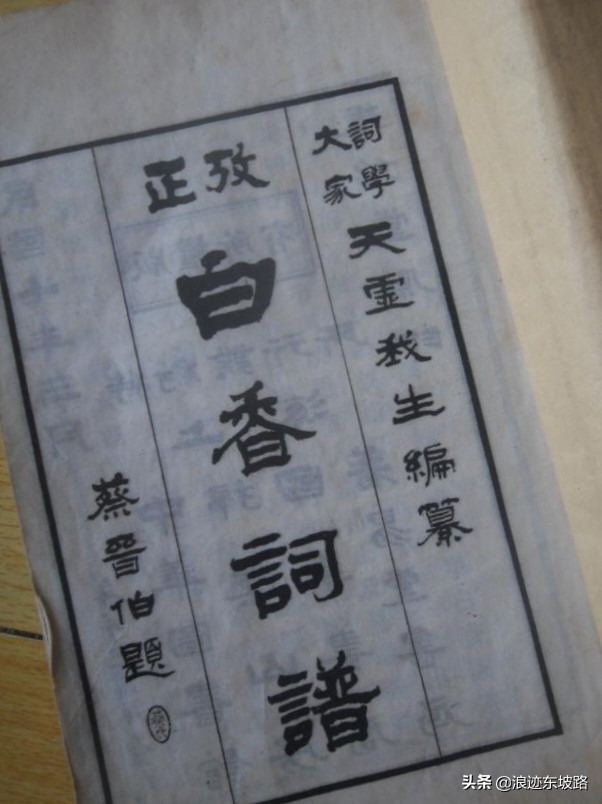 詞學大家天虛我生編纂
攷正
白香詞譜
蔡晉伯題
头条 @浪迹东坡路